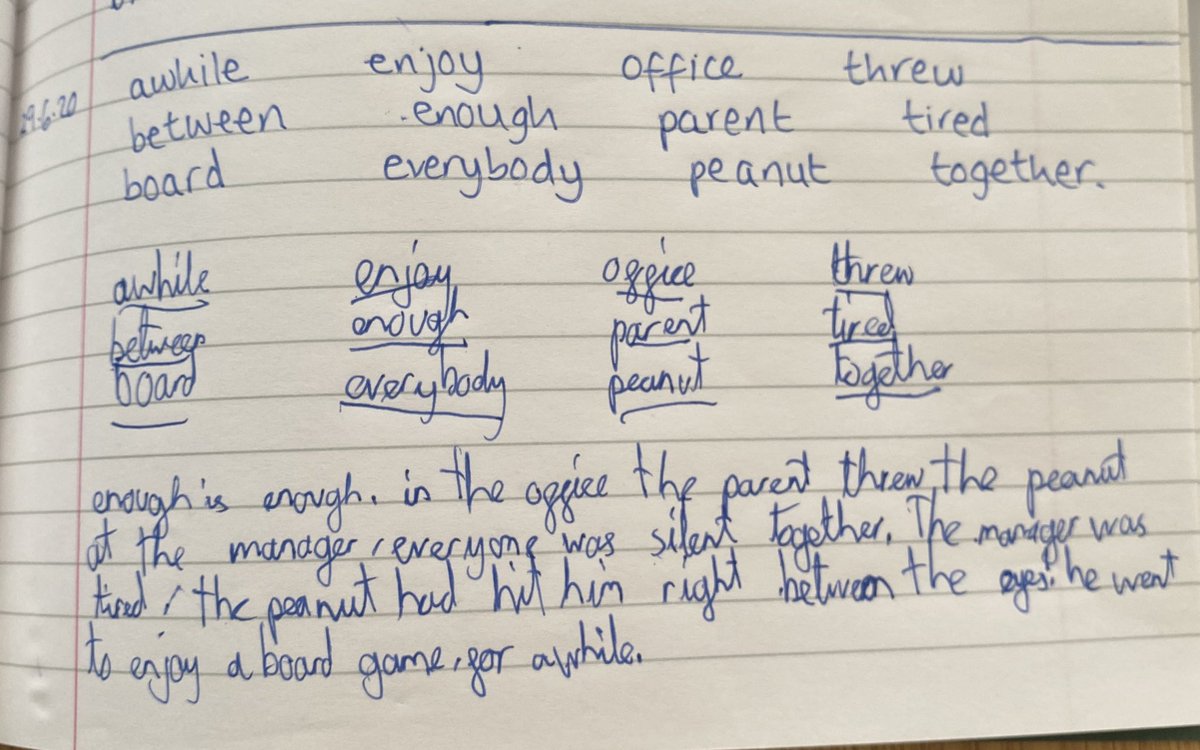 awhile enjoy office threw
29.6.20 between enough parent tired
board everybody peanut together.
awhile enjoy office threw
between enough parent tired
board everybody peanut together
enough is enough. in the office the parent threw the peanut
at the manager, everyone was silent together. The manager was
tired, the peanut had hit him right between the eyes. he went
to enjoy a board game, for awhile.